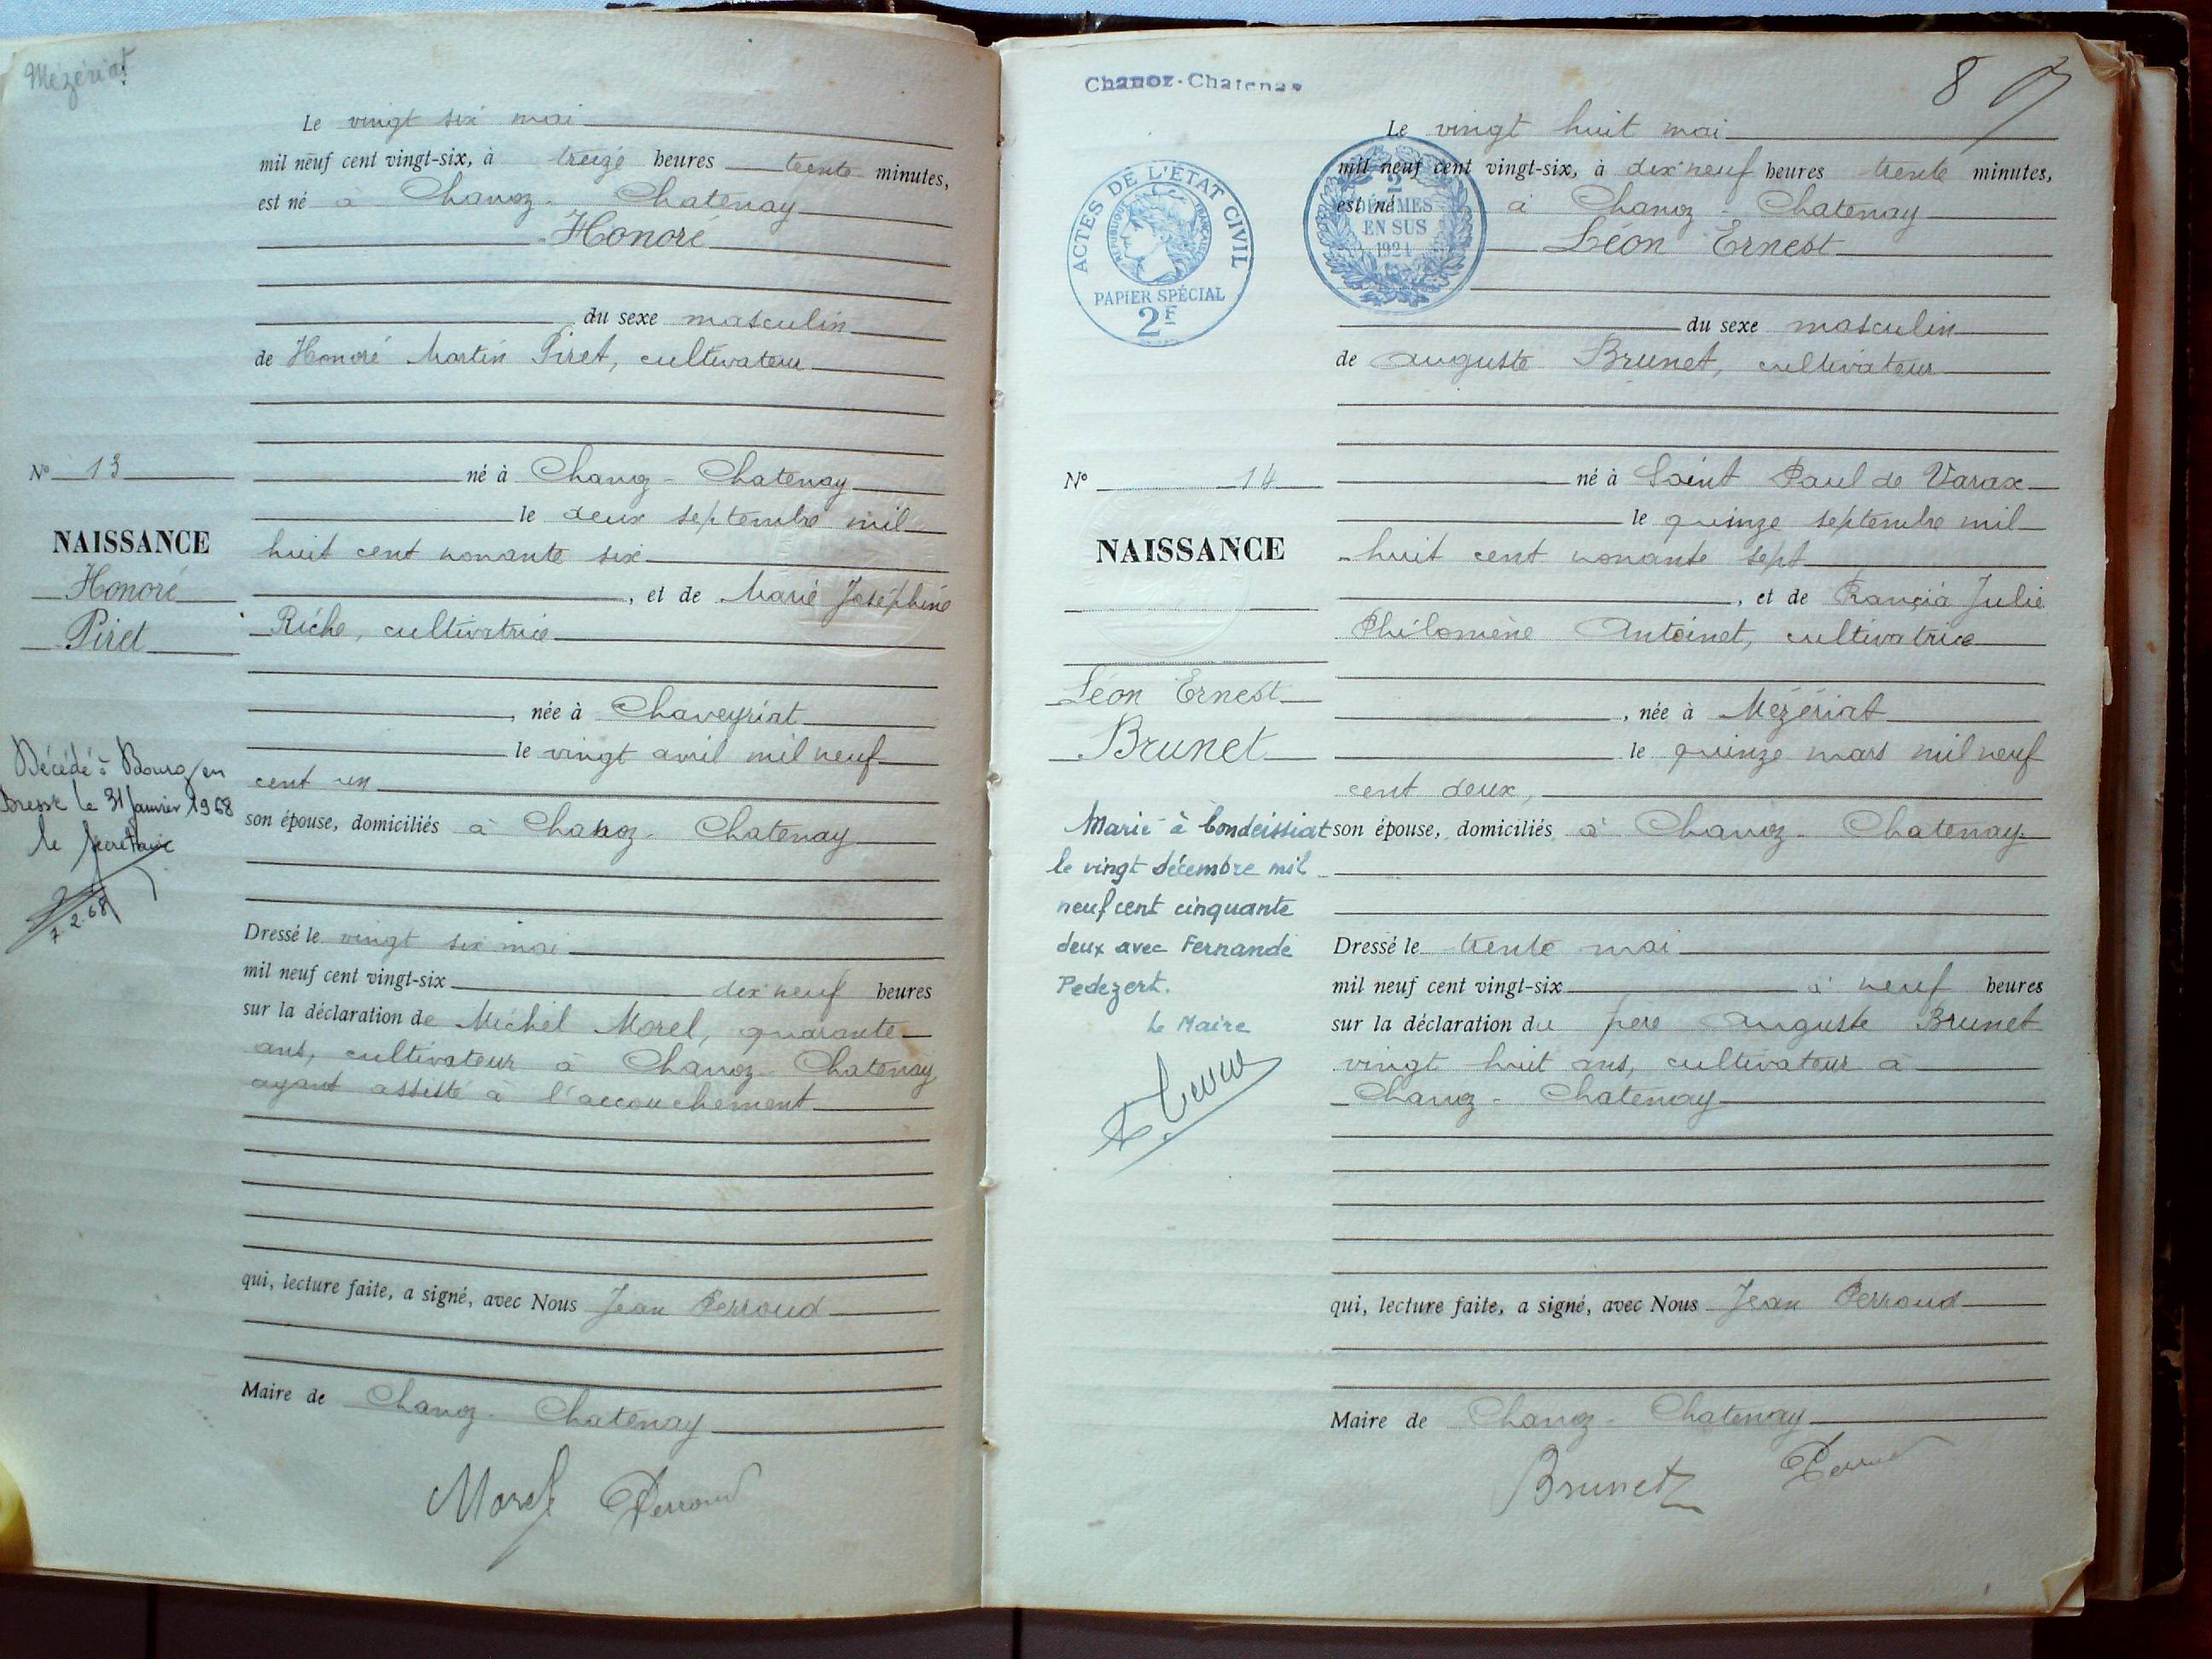 Mézériat
Le vingt six mai
mil neuf cent vingt-six, à treize heures trente minutes,
est né à Chanoz - Chatenay
Honoré
du sexe masculin
de Honoré Martin Piret, cultivateur
né à Chanoz - Chatenay
le deux septembre mil
huit cent nonante six
, et de Marie Joséphine
Riche, cultivatrice
, née à Chaveyriat
le vingt avril mil neuf
cent un
son épouse, domiciliés à Chanoz - Chatenay
Dressé le vingt six mai
mil neuf cent vingt-six dix neuf heures
sur la déclaration de Michel Morel, quarante
ans, cultivateur à Chanoz Chatenay
ayant assisté à l'accouchement
qui, lecture faite, a signé, avec Nous Jean Perroud
Maire de Chanoz - Chatenay
Morel Perroud
N° 13
NAISSANCE
Honoré
Piret
Décédé à Bourg en
Bresse le 31 Janvier 1968
le secrétaire
7.2.68
Chanoz-Chatenay
8
ACTES DE L'ÉTAT CIVIL
RÉPUBLIQUE FRANÇAISE
PAPIER SPÉCIAL
2F
2
DÉCIMES
EN SUS
1924
Le vingt huit mai
mil neuf cent vingt-six, à dix neuf heures trente minutes,
est né à Chanoz - Chatenay
Léon Ernest
du sexe masculin
de Auguste Brunet, cultivateur
né à Saint Paul de Varax
le quinze septembre mil
huit cent nonante sept
, et de Francia Julie
Philomène Antoinet, cultivatrice
, née à Mézériat
le quinze mars mil neuf
cent deux,
son épouse, domiciliés à Chanoz - Chatenay.
Dressé le trente mai
mil neuf cent vingt-six à neuf heures
sur la déclaration du père Auguste Brunet
vingt huit ans, cultivateur à
Chanoz - Chatenay
qui, lecture faite, a signé, avec Nous Jean Perroud
Maire de Chanoz - Chatenay
Brunet Perroud
N° 14
NAISSANCE
Léon Ernest
Brunet
Marié à Condeissiat
le vingt décembre mil
neuf cent cinquante
deux avec Fernande
Pedezert.
Le Maire